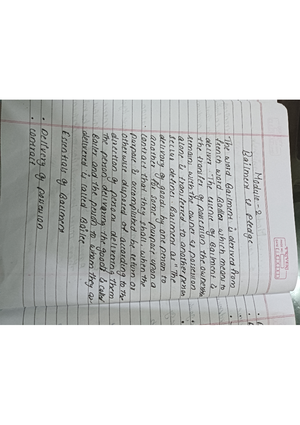 Module - 2
Bailment & Pledge
The word Bailment is derived from
french word Bailer which means to
deliver. The
the transfer of possession the ownership
remain with the owner & possession
alone is transferred to another person
defines Bailment as "The
delivery of goods by one person to
another for some purpose upon a
contract that shall, when the
purpose is accomplished be return or
otherwise disposed of according to the
direction of person delivering them
The person delivering the goods is called
Bailor and the person to whom they are
delivered is called Bailee
Essentials of Bailment
• Delivery of possession
• Contract